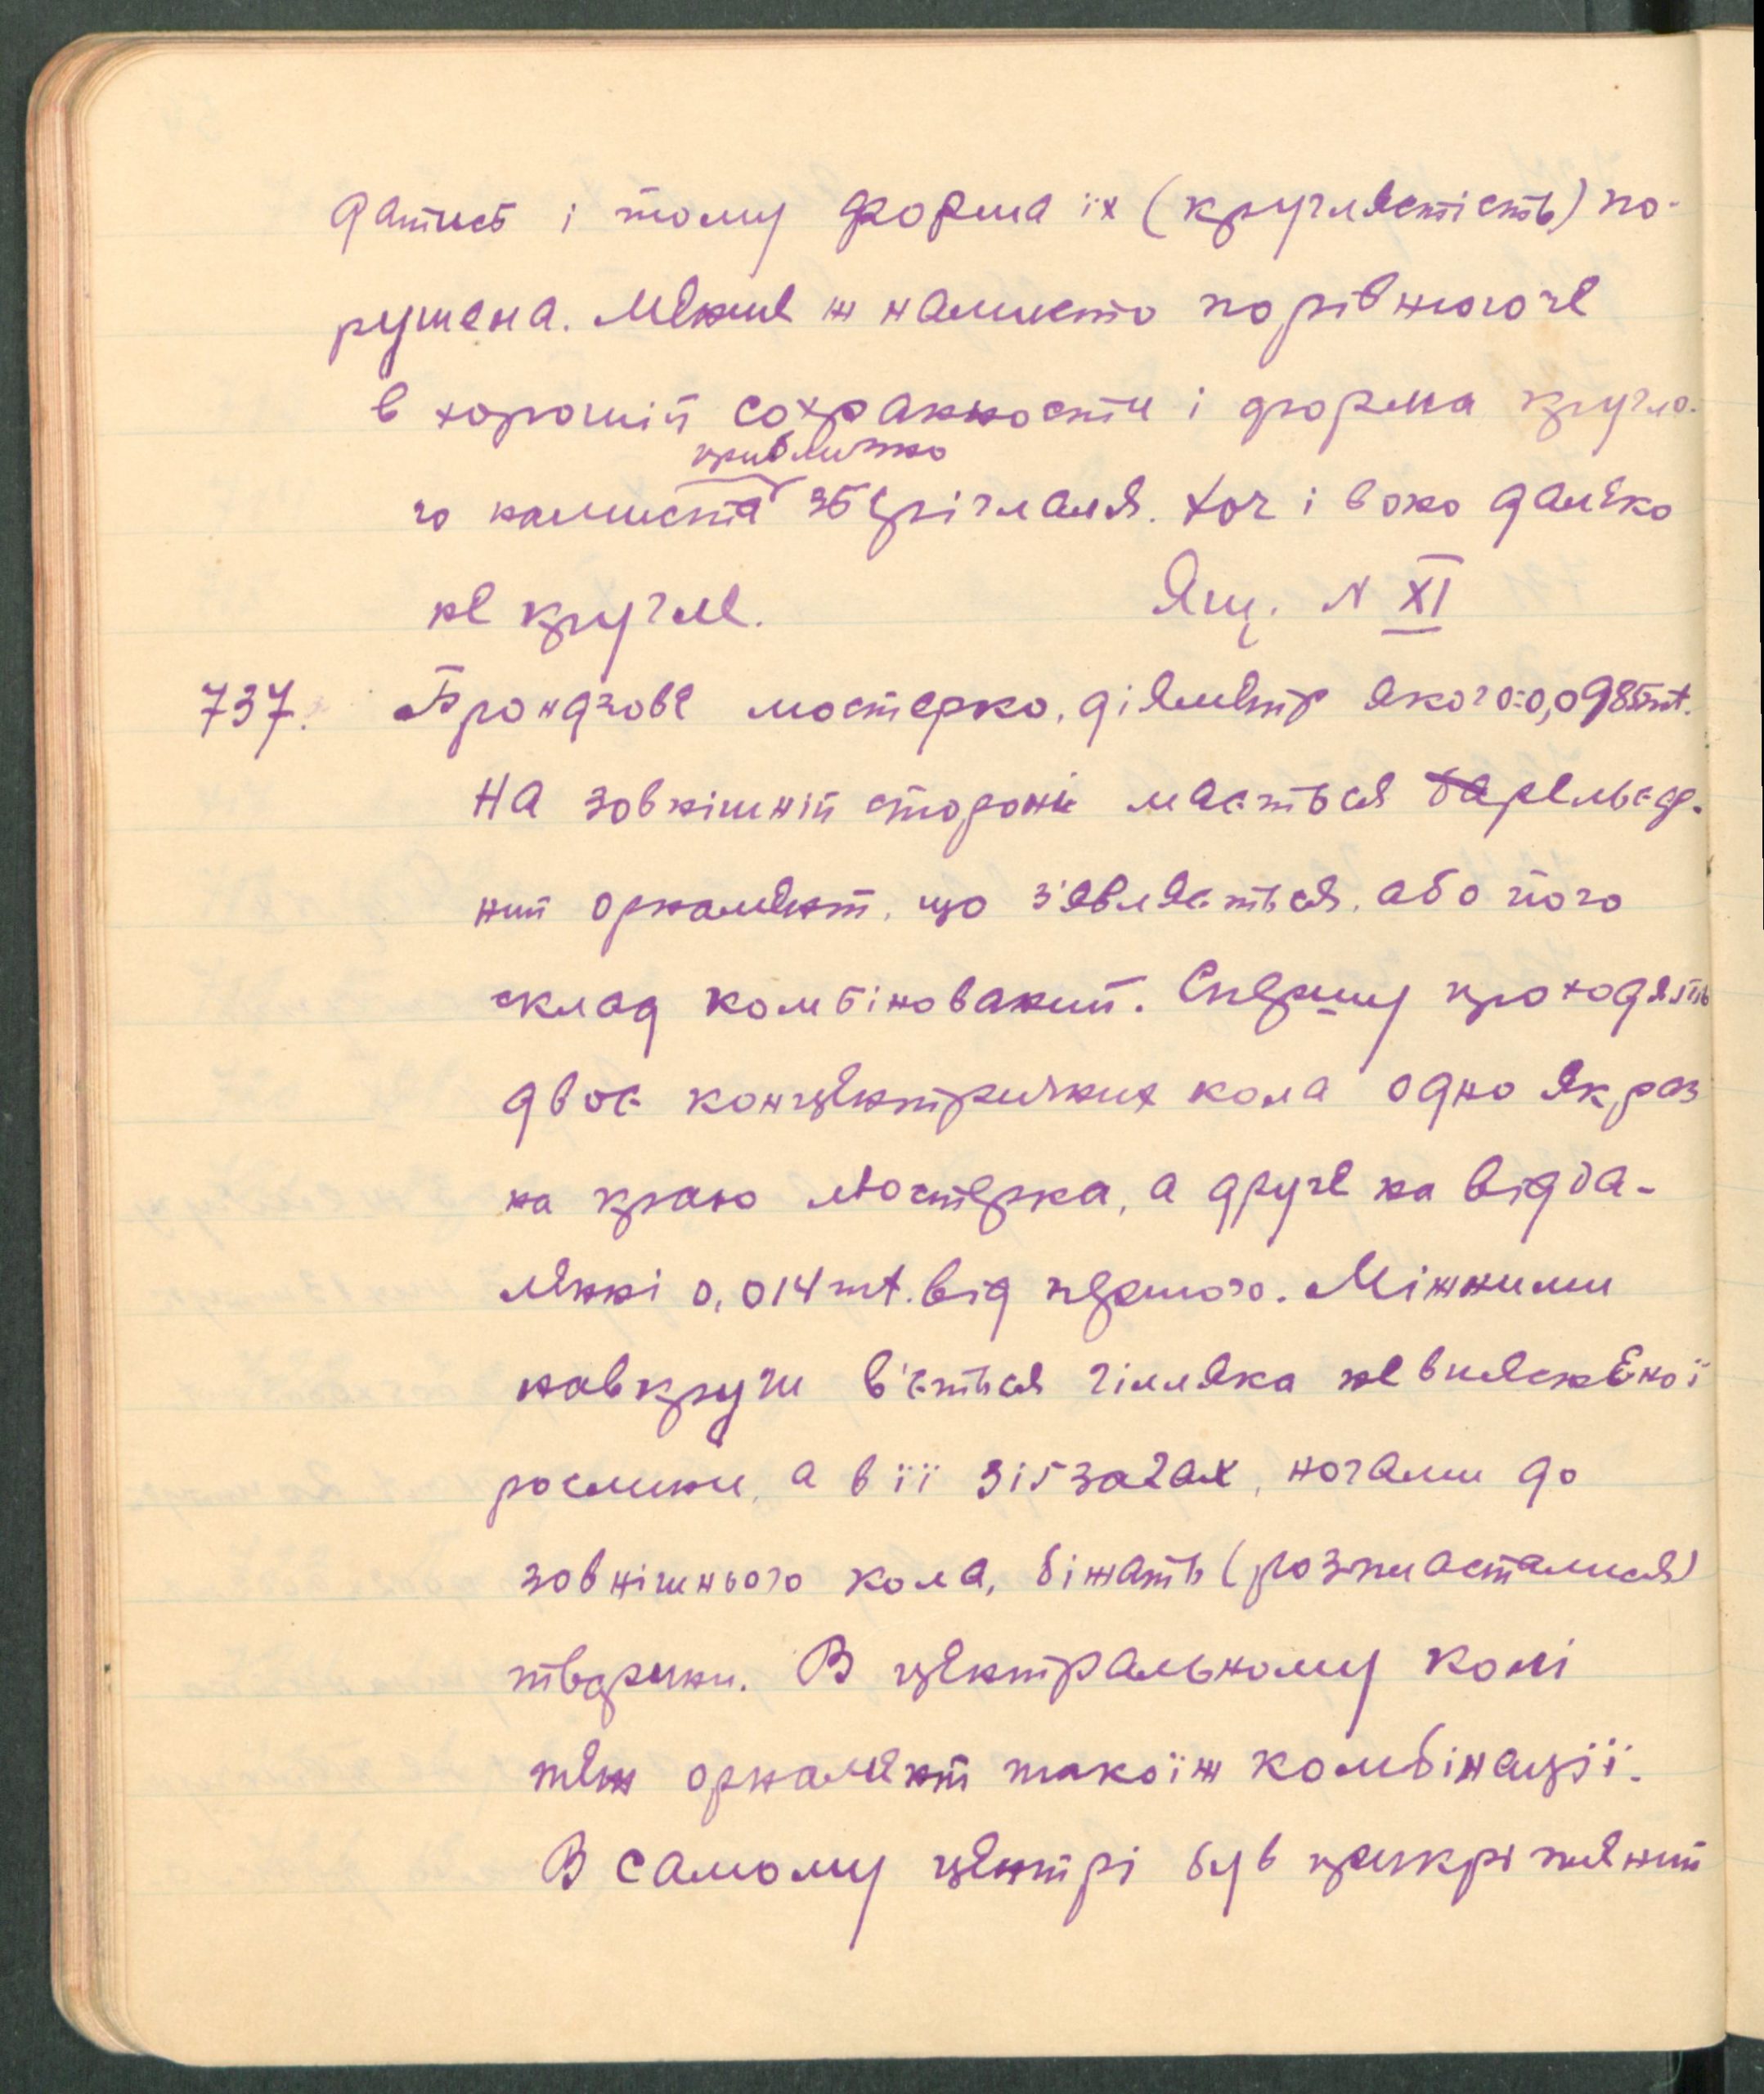 датись і тому форма їх (круглястість) по-
рушена. Менше ж намисто порівнююче
в хорошій сохранности і форма кругло-
приблизно
го намиста зберіглася. Хоч і воно далеко
не кругле. Ящ. N XI
737. Брондзове люстерко, діяметр якого=0,0985mt.
На зовнішній стороні мається барельєф-
ний орнамент, що з'являється, або його
склад комбінований. Спершу проходять
двоє концентричних кола одно як раз
на краю люстерка, а друге на відда-
ленні 0,014mt. від першого. Міжними
навкруги в'ється гілляка невиясненої
рослини, а в її зіґзаґах, ногами до
зовнішнього кола, біжать (розпласталися)
тварини. В центральному колі
теж орнамент такоїж комбінації.
В самому центрі був прикріплений